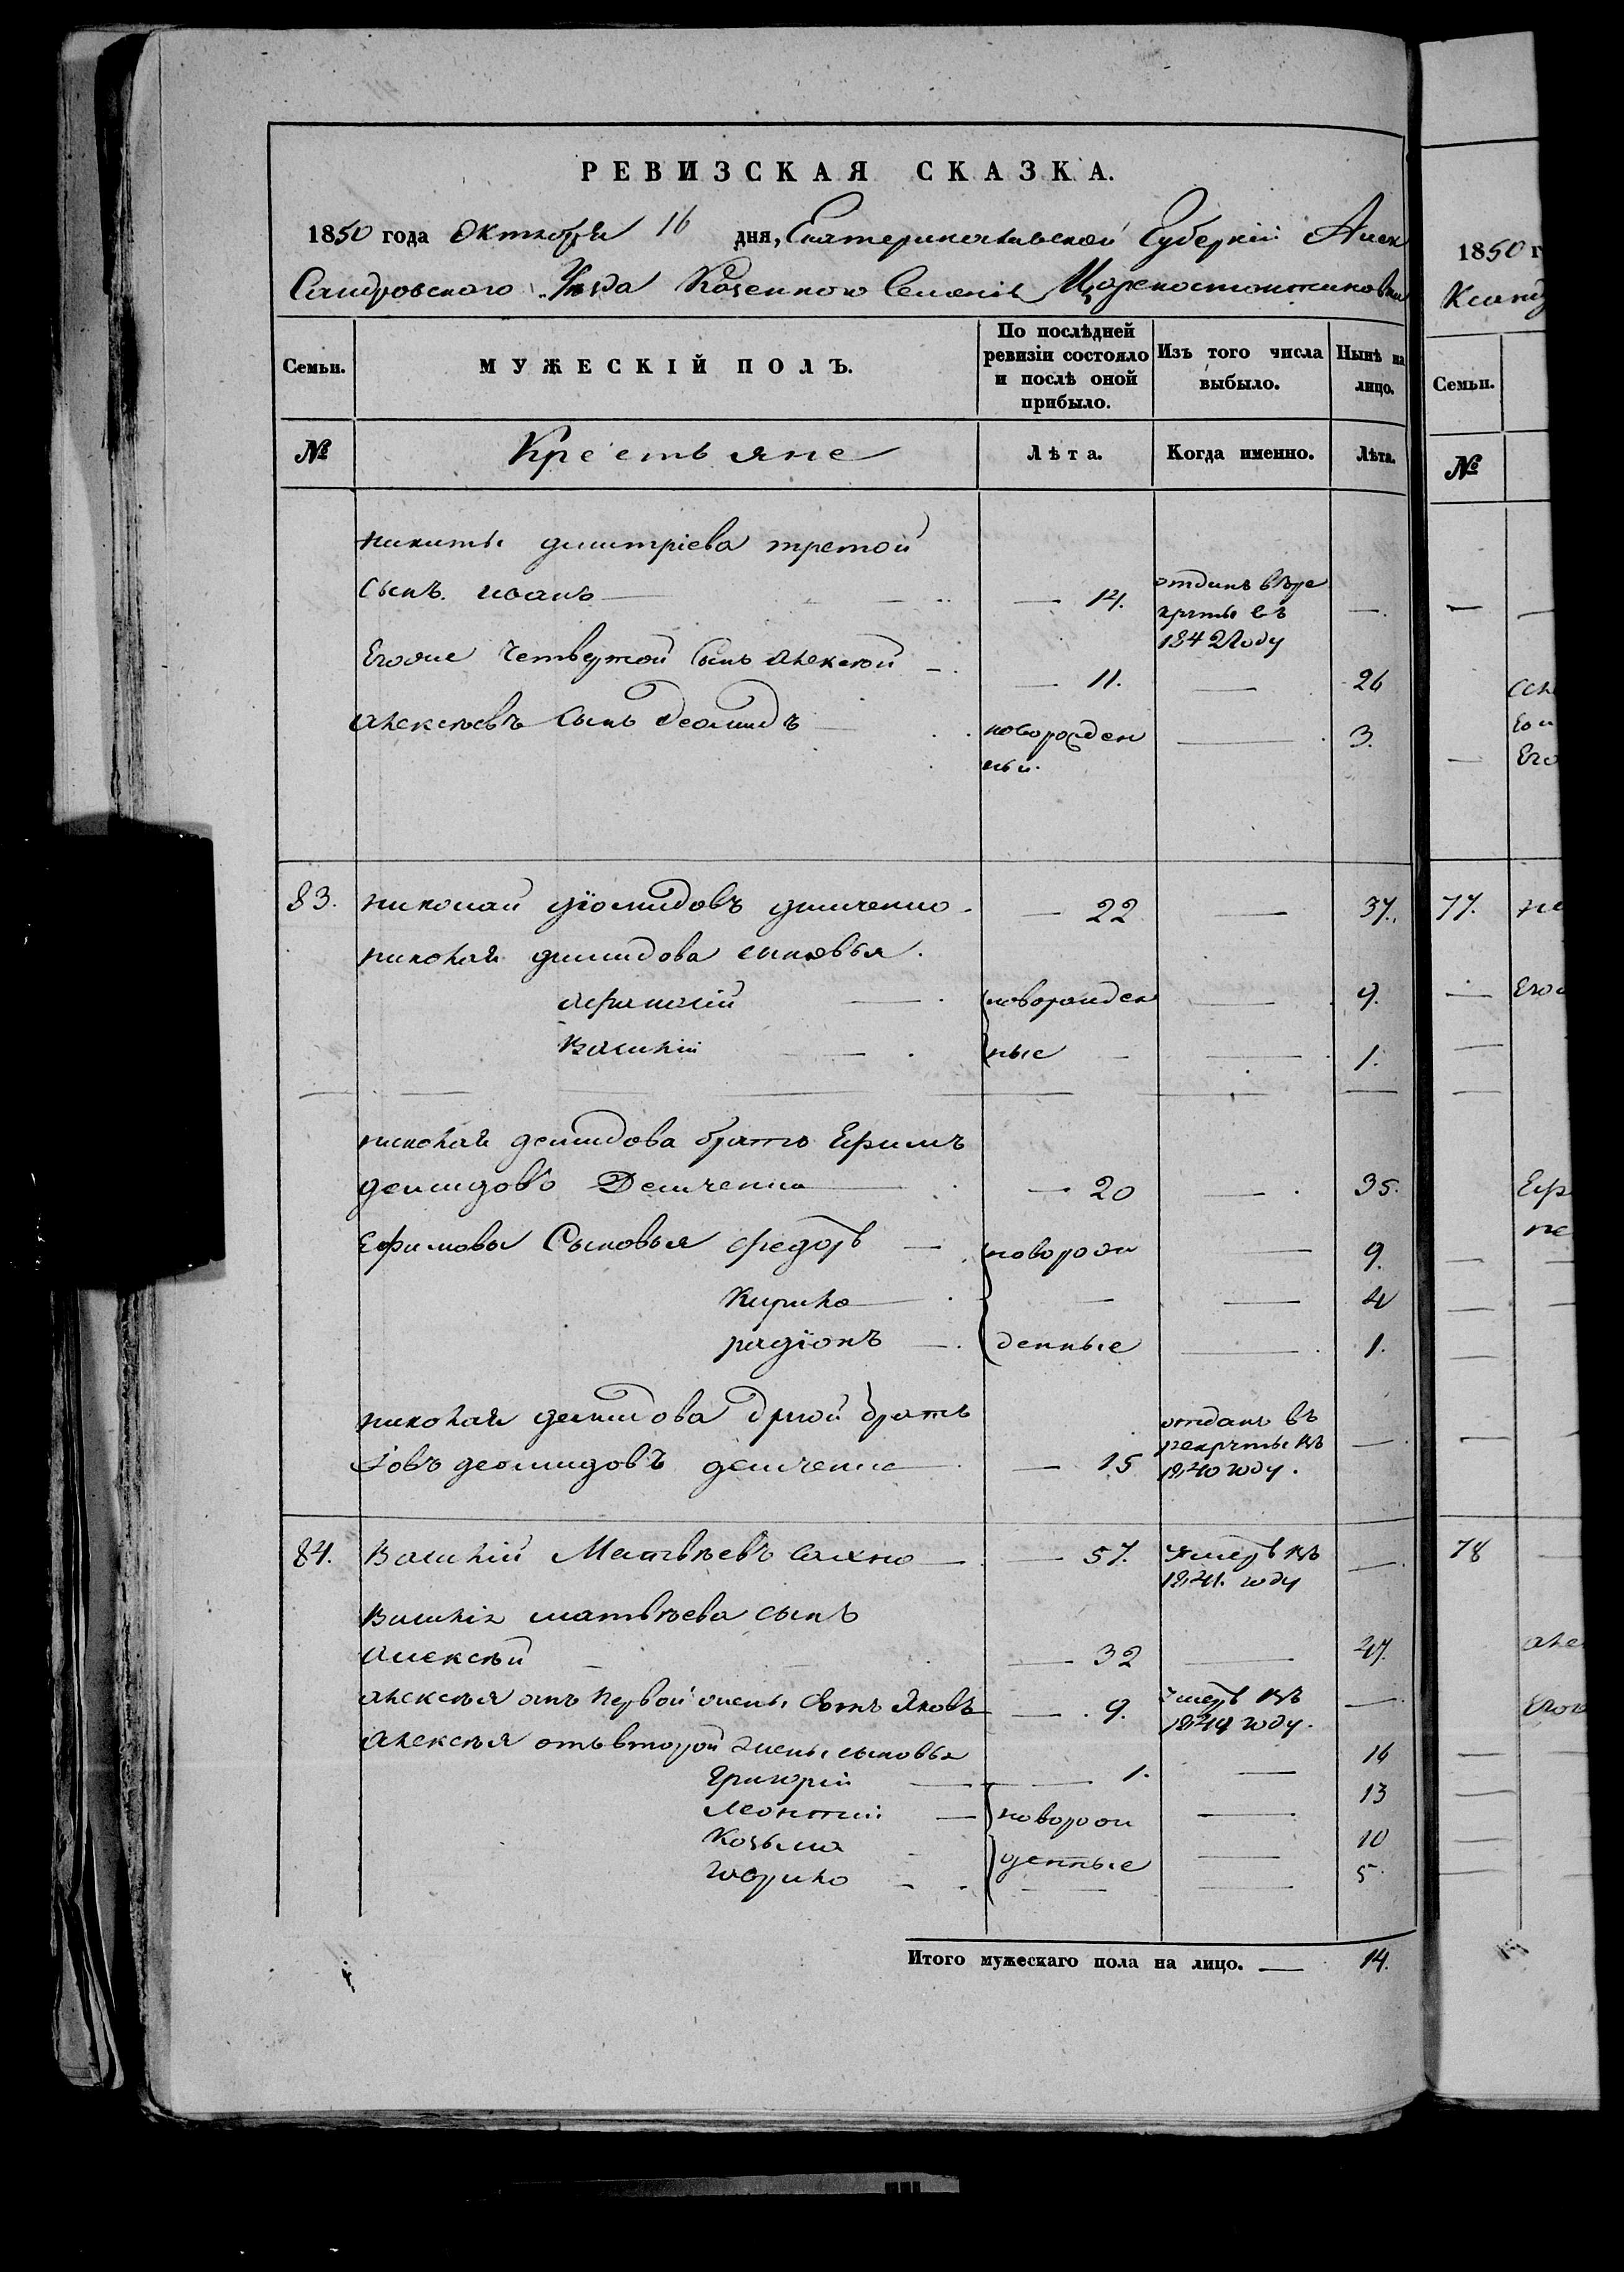 РЕВИЗСКАЯ СКАЗКА.
1850 года Октября 16 дня, Екатеринославской Губерніи Алек
Сандровского Уезда Казенного Селенія Цареконстантиновки
Семьи. МУЖЕСКІЙ ПОЛЪ. По послѣдней ревизіи состояло и послѣ оной прибыло. Изъ того числа выбыло. Нынѣ на лицо.
№ Крестьяне Лѣта. Когда именно. Лѣта.
никиты дмитріева третой
сынъ иоанъ — 14. отданъ въ ре
круты въ
1842 году
Егоже четвертой сынъ алексей — 11. — 26
алексеевъ сынъ деомидъ новорожден — 3.
ный.
83. николай діомидовъ демченко — 22 — 37.
николая демидова сыновья
афанасій новорожден — 9.
Василій ные — 1.
николая демидова братъ Ефимъ
демидовъ Демченко — 20 — 35.
Ефимовы Сыновья федоръ новорож — 9.
Кирило — — 4
радіонъ денные — 1.
николая демидова другой братъ отданъ въ
Іовъ деомидовъ демченко — 15 рекруты въ —
1840 году.
84. Василій Матвѣевъ Сахно — 57. умеръ въ —
1841. году
Василія матвѣева сынъ
алексѣй — 32 — 47.
алексѣя отъ первой жены сынъ Яковъ — 9. умеръ въ —
1844 году.
алексѣя отъ второй жены сыновья
Григорій — 1. — 16
Леонтій новорож — 13
Козьма денные — 10
гаврило — — 5.
Итого мужескаго пола на лицо. — 14.
1850 г
Семьи.
№
77.
78